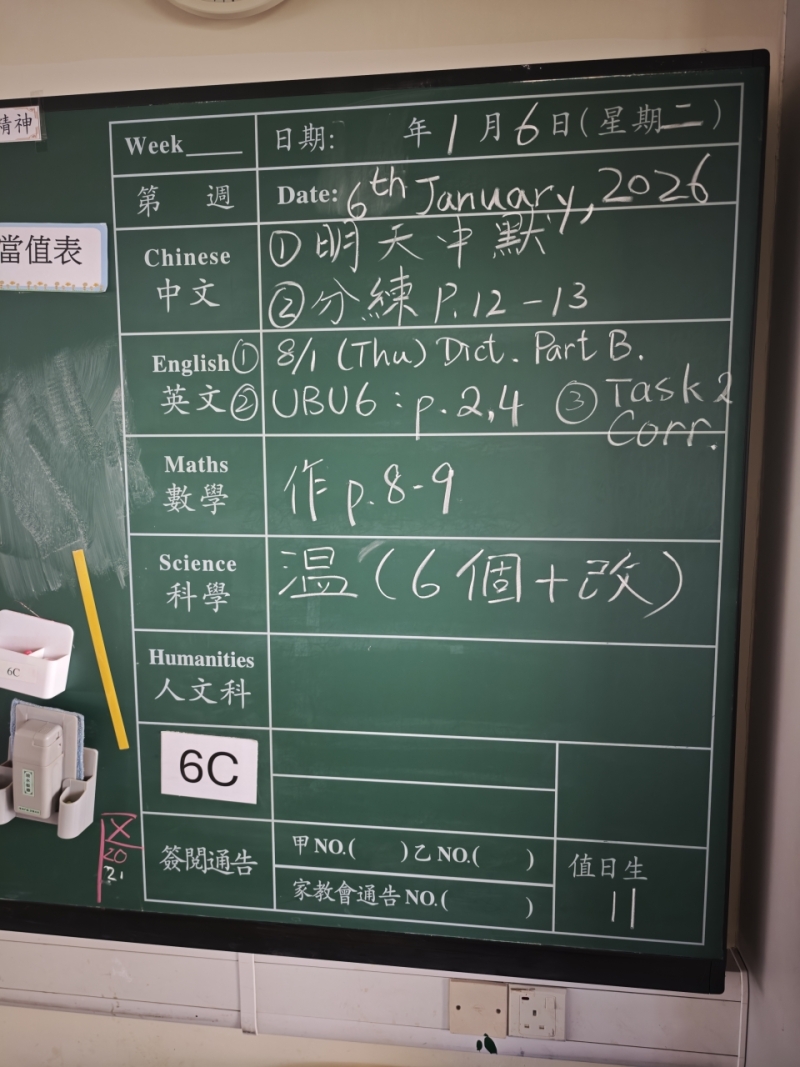 精神
當值表
Week____ 日期: 年1月6日(星期二)
第 週 Date: 6th January, 2026
Chinese ①明天中默
中文 ②分練 P.12-13
English ① 8/1 (Thu) Dict. Part B.
英文 ② UBU6: p.2,4 ③ Task 2
Corr.
Maths
數學 作 p.8-9
Science
科學 温(6個+改)
Humanities
人文科
6C
6C
簽閱通告 甲NO.( )乙NO.( )
家教會通告NO.( )
值日生
11
X
20
21